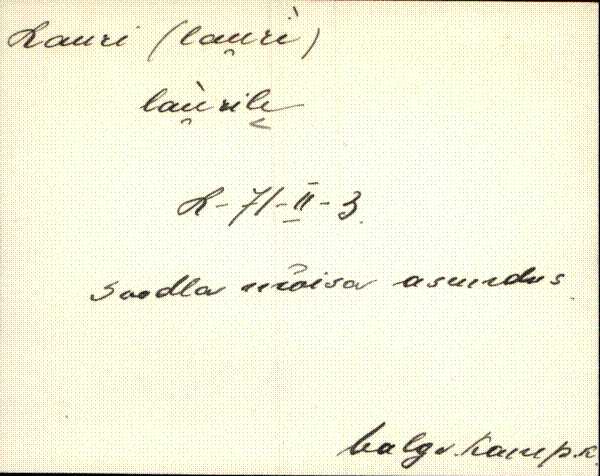 Lauri (lau̯rì)
làu̯rile
L-71-II-3.
Soodla mõisa asundus
Valgv. Kamp. k.